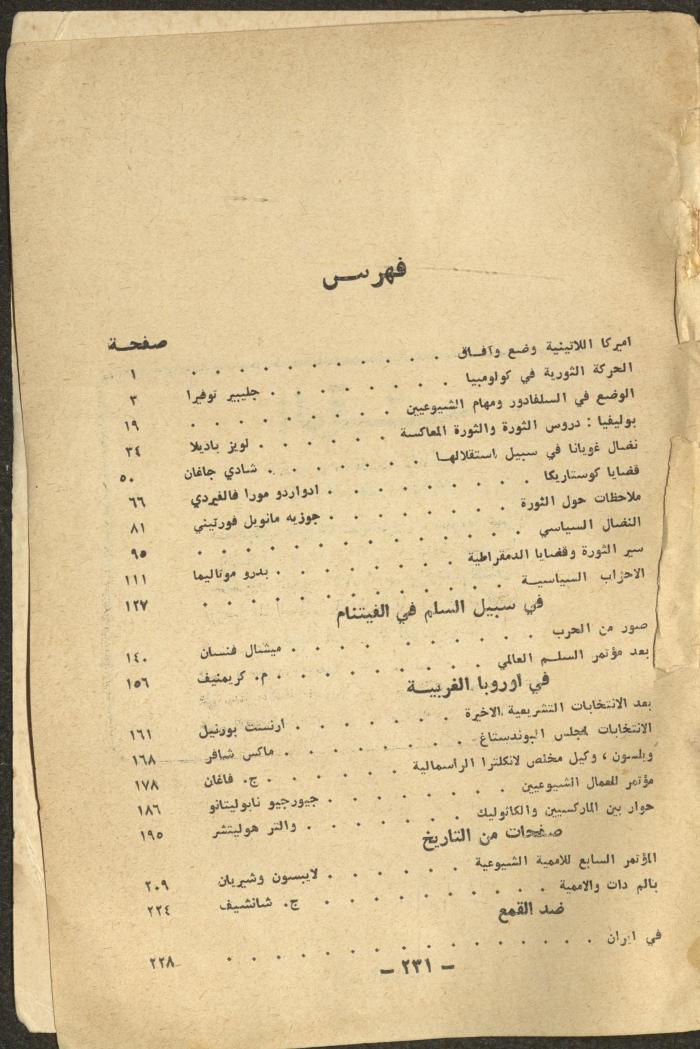 فهرس
صفحة
اميركا اللاتينية وضع وآفاق . . . . . . . . . . ١
الحركة الثورية في كولومبيا . . . . . . . جليبير توفيرا ٣
الوضع في السلفادور ومهام الشيوعيين . . . . . . . . ١٩
بوليفيا : دروس الثورة والثورة المعاكسة . . . . . لويز باديلا ٣٤
نضال غويانا في سبيل استقلالها . . . . . . . شادي جاغان ٥٠
قضايا كوستاريكا . . . . . . . ادواردو مورا فالفيردي ٦٦
ملاحظات حول الثورة . . . . . . . جوزيه مانويل فورتيني ٨١
النضال السياسي . . . . . . . . . . . . ٩٥
سير الثورة وقضايا الدمقراطية . . . . . . . بدرو موتاليما ١١١
الاحزاب السياسية . . . . . . . . . . . ١٢٧
في سبيل السلم في الفيتنام
صور من الحرب . . . . . . . . . ميشال فنسان ١٤٠
بعد مؤتمر السلم العالمي . . . . . . . . م. كريمنيف ١٥٦
في اوروبا الغربية
بعد الانتخابات التشريعية الاخيرة . . . . . . ارنست بورنيل ١٦١
الانتخابات لمجلس البوندستاغ . . . . . . . ماكس شافر ١٦٨
ويلسون ، وكيل مخلص لانكلترا الراسمالية . . . . . . ج. فاغان ١٧٨
مؤتمر للعمال الشيوعيين . . . . . . . جيورجيو نابوليتانو ١٨٦
حوار بين الماركسيين والكاثوليك . . . . . . والتر هوليتشر ١٩٥
صفحات من التاريخ
المؤتمر السابع للاممية الشيوعية . . . . . لايبسون وشيريان ٢٠٩
بالم دات والاممية . . . . . . . . . ج. شانشيف ٢٢٤
ضد القمع
في ايران . . . . . . . . . . . . . ٢٢٨
– ٢٣١ –